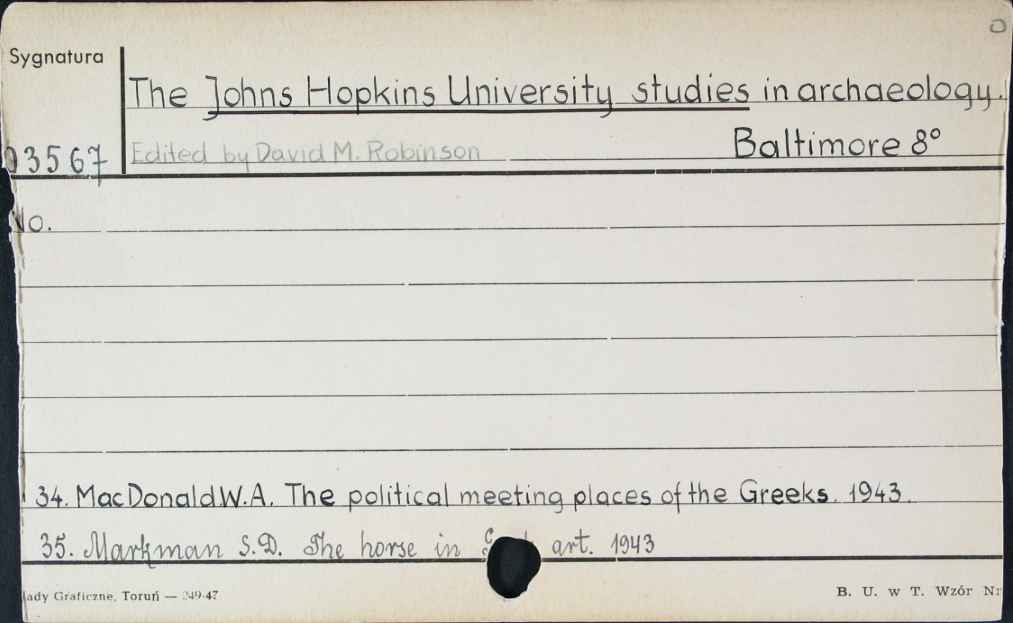 Sygnatura
The Johns Hopkins University studies in archaeology.
03567 Edited by David M. Robinson Baltimore 8°
No.
34. MacDonald W.A. The political meeting places of the Greeks. 1943.
35. Markman S.D. The horse in art. 1943
ady Graficzne, Toruń — 249-47
B. U. w T. Wzór Nr